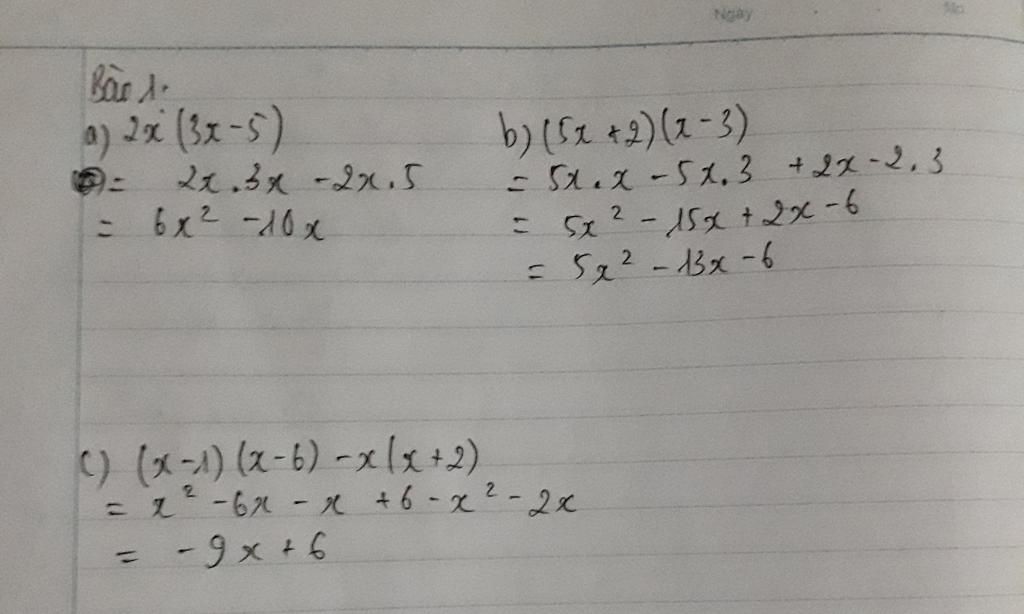 Ngày
No
Bài 1:
a) 2x (3x - 5)
= 2x.3x - 2x.5
= 6x² - 10x
b) (5x + 2)(x - 3)
= 5x.x - 5x.3 + 2x - 2.3
= 5x² - 15x + 2x - 6
= 5x² - 13x - 6
c) (x - 1)(x - 6) - x(x + 2)
= x² - 6x - x + 6 - x² - 2x
= - 9x + 6